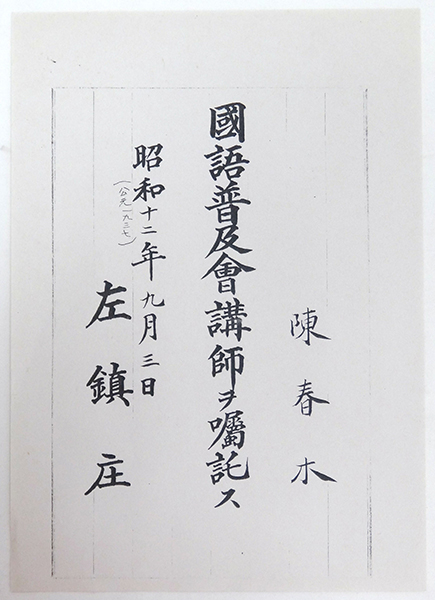 陳春木
國語普及會講師ヲ囑託ス
昭和十二年九月三日
(公元一九三七)
左鎮庄